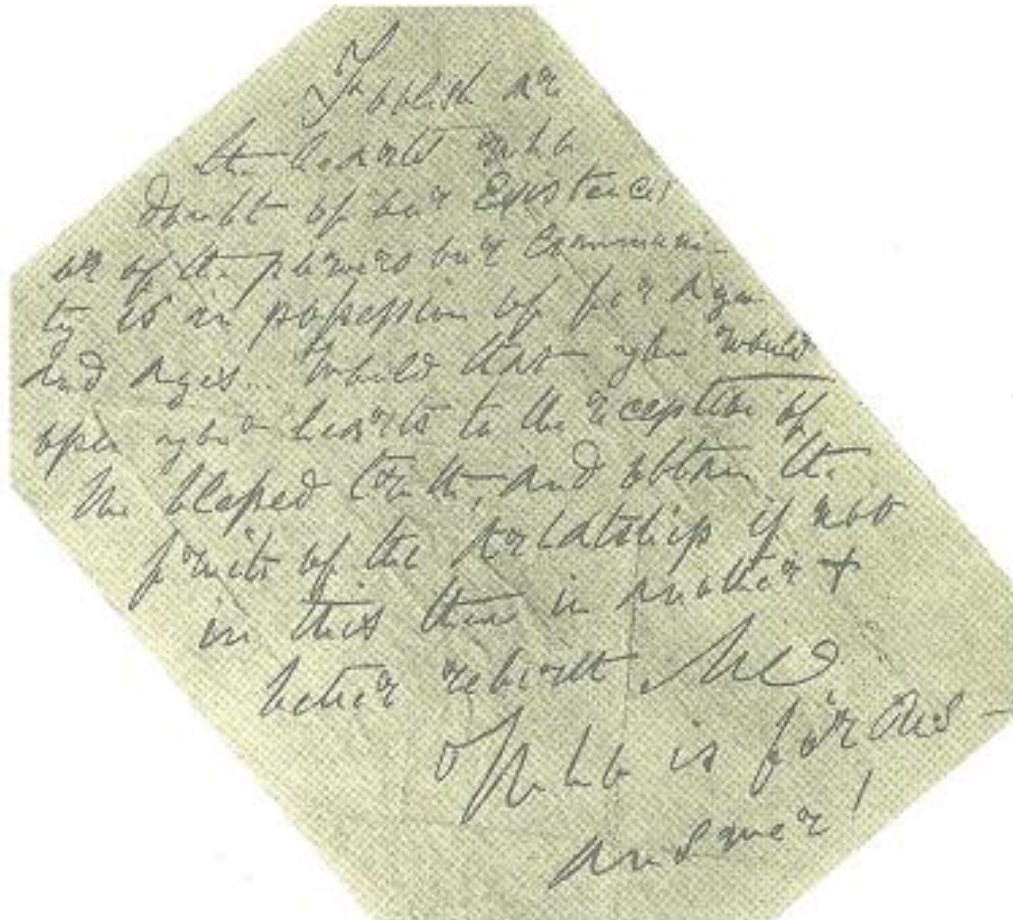 Foolish are
the hearts who
doubt of our Existence!
or of the powers our communi-
ty is in possession of for ages
and ages. Would that you would
open your hearts to the reception of
the blessed truth, and obtain the
fruits of the Arhatship if not
in this then in another +
better rebirth
Who is for us —
answer!